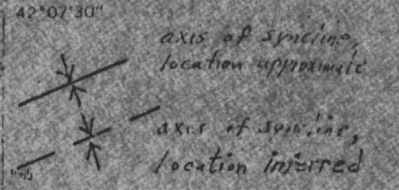 42°07'30"
axis of syncline,
location approximate
axis of syncline,
location inferred